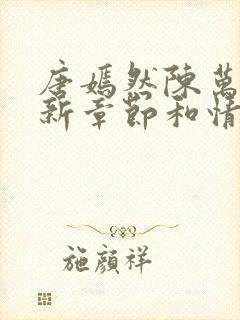 唐嫣然陳萬
新章節和情
施顔祥